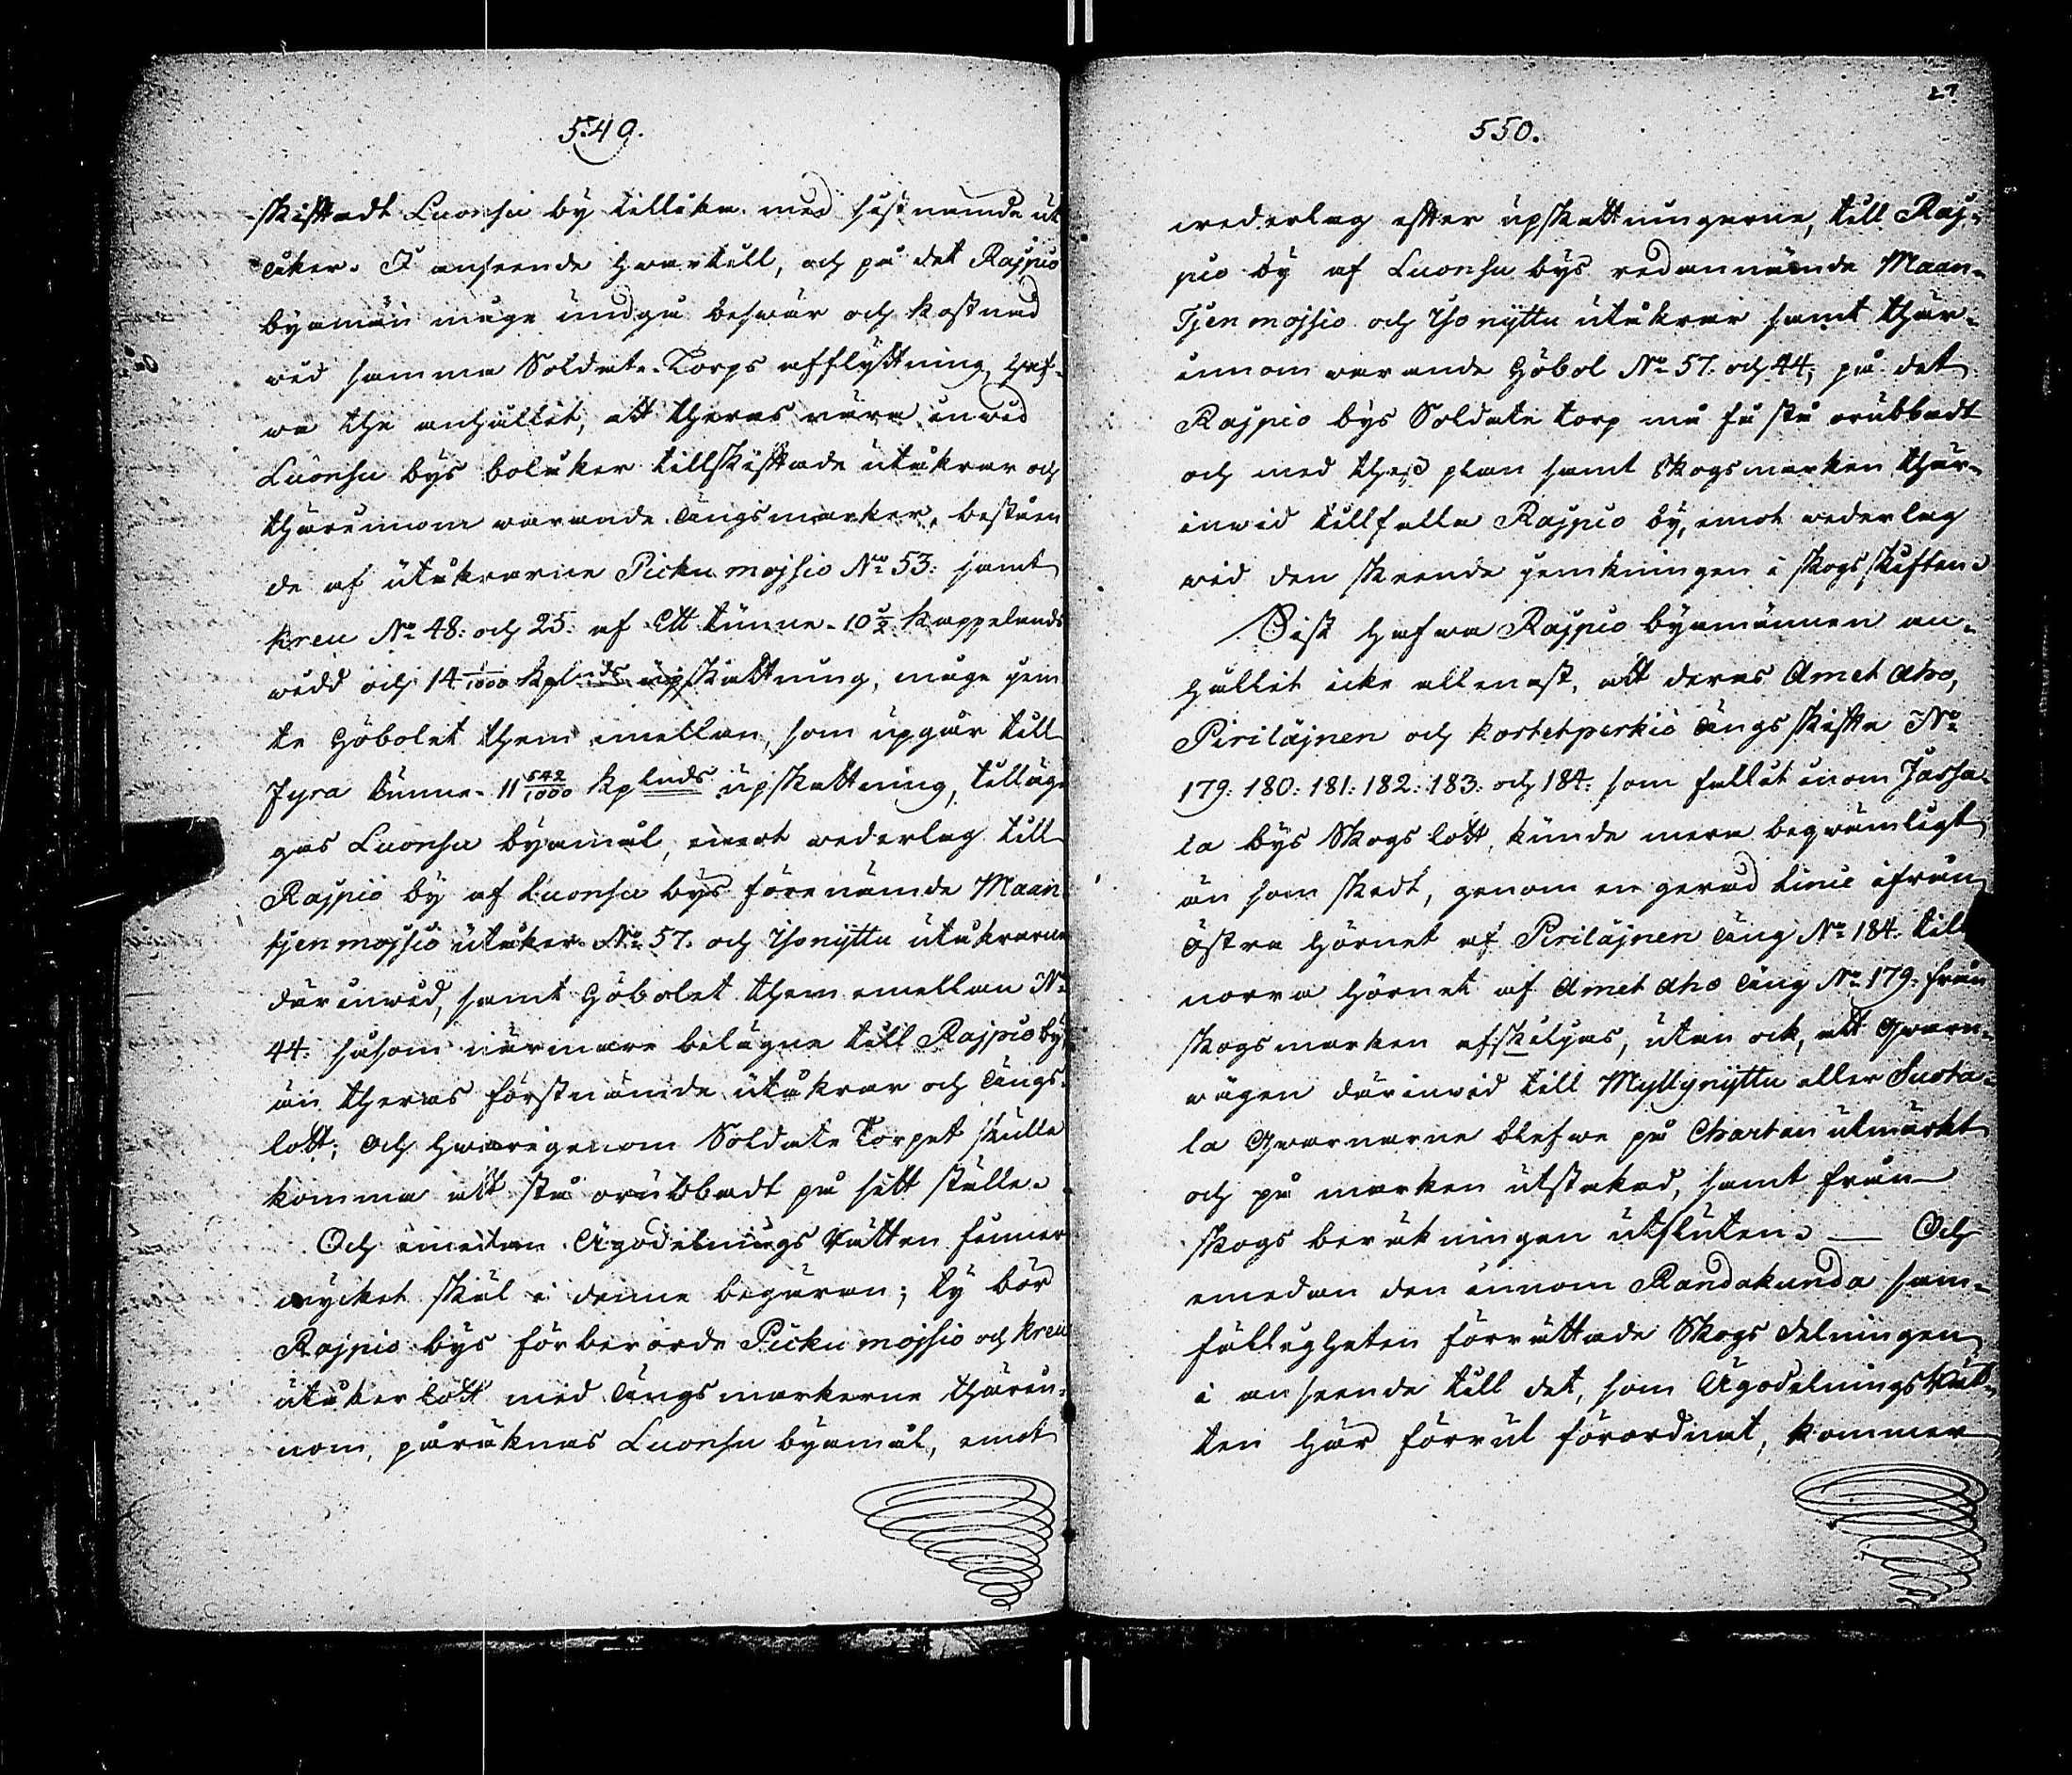 549.
skiftadt Luonsu by tillika med sistnämde ut
åker. I anseende hwartill, och på det Rajpio
byamän måge undgå beswär och kostnad
wid samma Soldate-Torps afflyttning, haf-
wa the anhållit, att theras nära inwid
Luonsu bys boluker tillskiftade utåkrar och
thärinnom warande ängsmarker, bestäen
de af utåkrarne Picku mojsio No 53: samt
Kreu No 48: och 25: af Ett tunne-10 5/2 kappelands
widd och 14 1/1000 kplnds upskattning, måge jem
te Göbolet them emellan, som upgår till
Fyra tunne-11 542/1000 kplnds upskattning, tilläg-
gas Luonsu byamål, emot wederlag till
Rajpio by af Luonsu bys förenämde Maan
tjen mojsio utåker No 57. och Iso nijttu utåkrarne
därinwid, samt Göbolet them emellan No
44: såsom närmare belägne till Rajpio by,
än theras förstnämde utåkrar och Ängs-
lott; och hwarigenom Soldate Torpet skulle
komma att stå orubbadt på sitt ställe.
Och emedan Ägodelnings Rätten finner
mycket skäl i denne begäran; ty bör
Rajpio bys förberörde Picku mojsio och Kreu
utåker lott med Ängsmarkerne thärin-
nom, påräknas Luonsu byamål, emot
27
550.
wederlag efter upskattningarne, till Raj-
pio by af Luonsu bys redannämde Maan-
Tjen mojsio och Iso nijttu utåkrar samt thär-
innom warande Göbol No 57. och 44; på det
Rajpio bys Soldate torp må få stå orubbadt
och med thess plan samt skogsmarken thär-
inwid tillfalla Rajpio by, emot wederlag
wid den skeende jemkningen i skogs skiften.
Sist hafwa Rajpio byamännen an-
hållit icke allenast, att deras Amet Aho,
Piriläjnen och Kortetperkiö ängs skifte No
179: 180: 181: 182: 183: och 184: som fallit inom Jassa-
la bys Skogs lott, kunde mera beqwämligt
än som skedt, genom en gerad linie ifrån
östra hörnet af Piriläjnen äng No 184. till
norra hörnet af Amet Aho äng No 179: från
skogsmarken afskiljas, utan ock, att Qwarn-
wägen därinwid till Myllynijttu eller Suota-
la Qwarnarne blefwe på Chartan utmärkt
och på marken utstakad, samt från
skogs beräkningen utsluten. — Och
emedan den innom Randakunda sam-
fälligheten förrättade Skogs delningen
i anseende till det, som Ägodelnings Rät-
ten här förrut förordnat, kommer